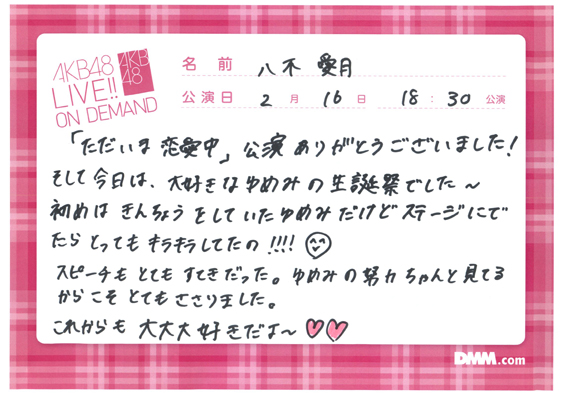 AKB48
LIVE!!
ON DEMAND
AKB
48
名前 八木 愛月
公演日 2月 16日 18:30公演
「ただいま恋愛中」公演ありがとうございました!
そして今日は、大好きなゆめみの生誕祭でした〜
初めはきんちょうをしていたゆめみだけどステージにで
たらとってもキラキラしてたの!!!!
スピーチもとてもすてきだった。ゆめみの努力ちゃんと見てる
からこそとてもささりました。
これからも大大大好きだよ〜
DMM.com